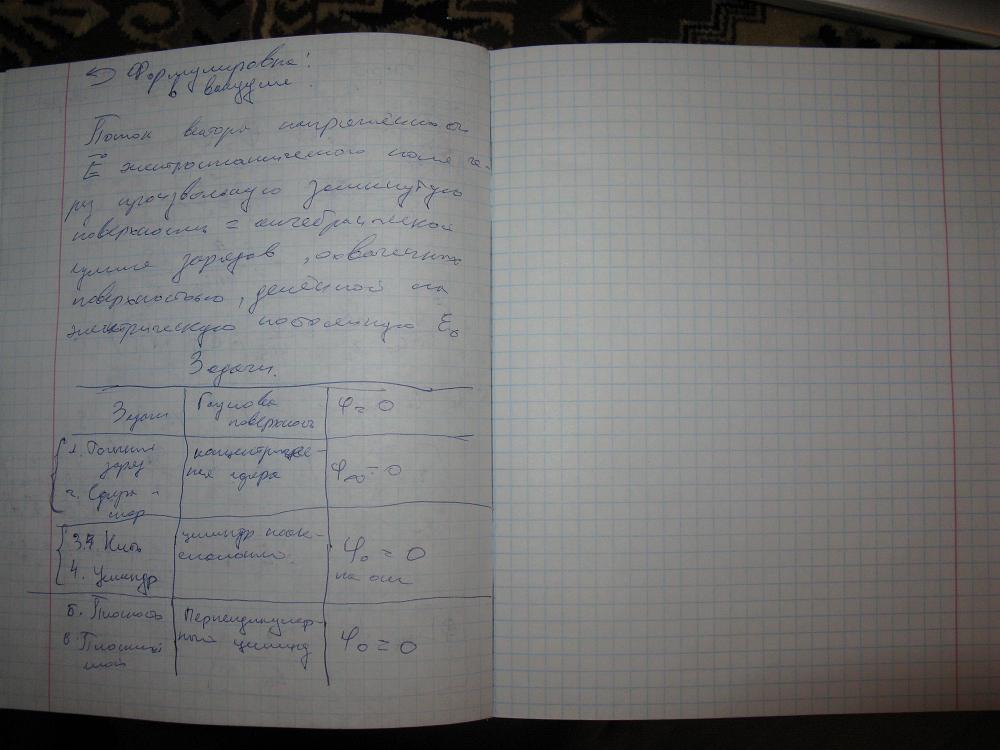 Формулировка:
в вакууме
Поток вектора напряжённости
E⃗ электростатического поля че-
рез произвольную замкнутую
поверхность = алгебраической
сумме зарядов, охваченных
поверхностью, делённой на
электрическую постоянную ε₀
Задачи.
Задачи | Гауссова поверхность | φ = 0
1. Точечный заряд
2. Сфера - шар | концентриче-
ская сфера | φ∞ = 0
3. Нить
4. Цилиндр | цилиндр коак-
сиальный | φ₀ = 0
на оси
5. Плоскость
6. Плоский
слой | Перпендикуляр-
ный цилиндр | φ₀ = 0